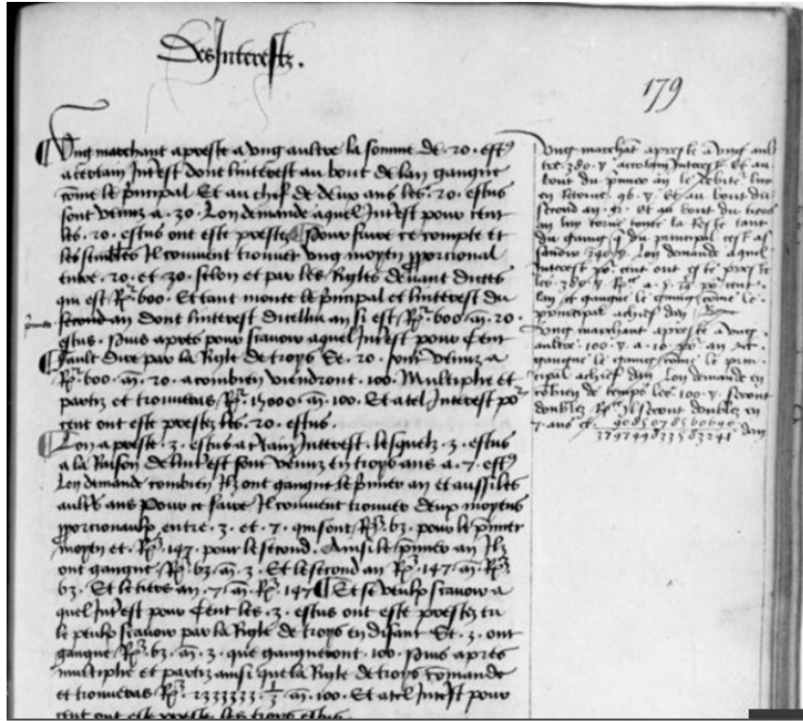 Des Interestz.
179
Ung marchant a preste a ung aultre la somme de . 20 . estus
a certain Int'est dont linterest au bout de lan gangne
come le principal Et au chief de deux ans les . 20 . estus
sont venuz a . 30 . Lon demande a quel Int'est pour cent
les . 20 . estus ont este prestez Pour faire ce compte et
les semblables Il convient trouver ung moyen pporcional
entre . 20 . et 30 . selon et par les Rigles devant dictes
qui est R². 600 . Et tant monte le principal et linterest du
second an dont linterest dicellui an si est R². 600 . m̃ . 20 .
estus . Puis apres pour scavoir a quel Int'est pour Cent
fault dire par la Rigle de troys Se . 20 . sont venuz a
R². 600 . m̃ . 20 . a combien viendront . 100 . Multiplie et
partiz et trouveras R². 15000 . m̃ . 100 . Et a tel Interest po²
cent ont este prestez les . 20 . estus .
Lon a preste . 3 . estus a Int'est . lesquelz . 3 . estus
a la Raison de lint'est sont venuz en troys ans a . 7 . estus
Lon demande combien Ilz ont gangne le p'mier an et aussi les
aultres ans Pour ce faire Il convient trouver deux moyens
pporcionaulx entre . 3 . et 7 . qui sont R³. 63 . pour le p'mier
moyen et . R³. 147 . pour le second . Ainsi le p'mier an Ilz
ont gangne R³. 63 . m̃ . 3 . Et le second an R³. 147 . m̃ . R³.
63 . Et le tiers an . 7 . m̃ . R³. 147 Et se veulx scavoir a
quel Int'est pour Cent les . 3 . estus ont este prestez tu
le peulx scavoir par la Rigle de troys en disant Se . 3 . ont
gangne R³. 63 . m̃ . 3 . que gangneront . 100 . Puis apres
multiplie et partiz ainsi que la Rigle de troys comande
et trouveras R³. 2333333 . 1/3 . m̃ . 100 . Et a tel Int'est pour
cent ont este preste les troys estus .
Ung marchāt a preste a ung aul
tre . 380 . a certain Interest Et au
bout du p'mier an le debiteur luy
en Retorne . 96 . Et au bout du
second an . 92 . Et au bout du tiers
an luy torne toute la Reste tant
du gaing q du principal cest as
savoir 340 Lon demande a quel
Interest po² cent ont este preste
les . 380 . po² cent
lan et gangne le gaing come le
principal a chief dan
Ung marchant a preste a ung
aultre . 100 . a . 10 . po² an et
gangne le gaing come le prin
cipal a chief dan Lon demande en
cōbien de temps les . 100 . seront
doublez Ilz seront doublez en
7 . ans et dan